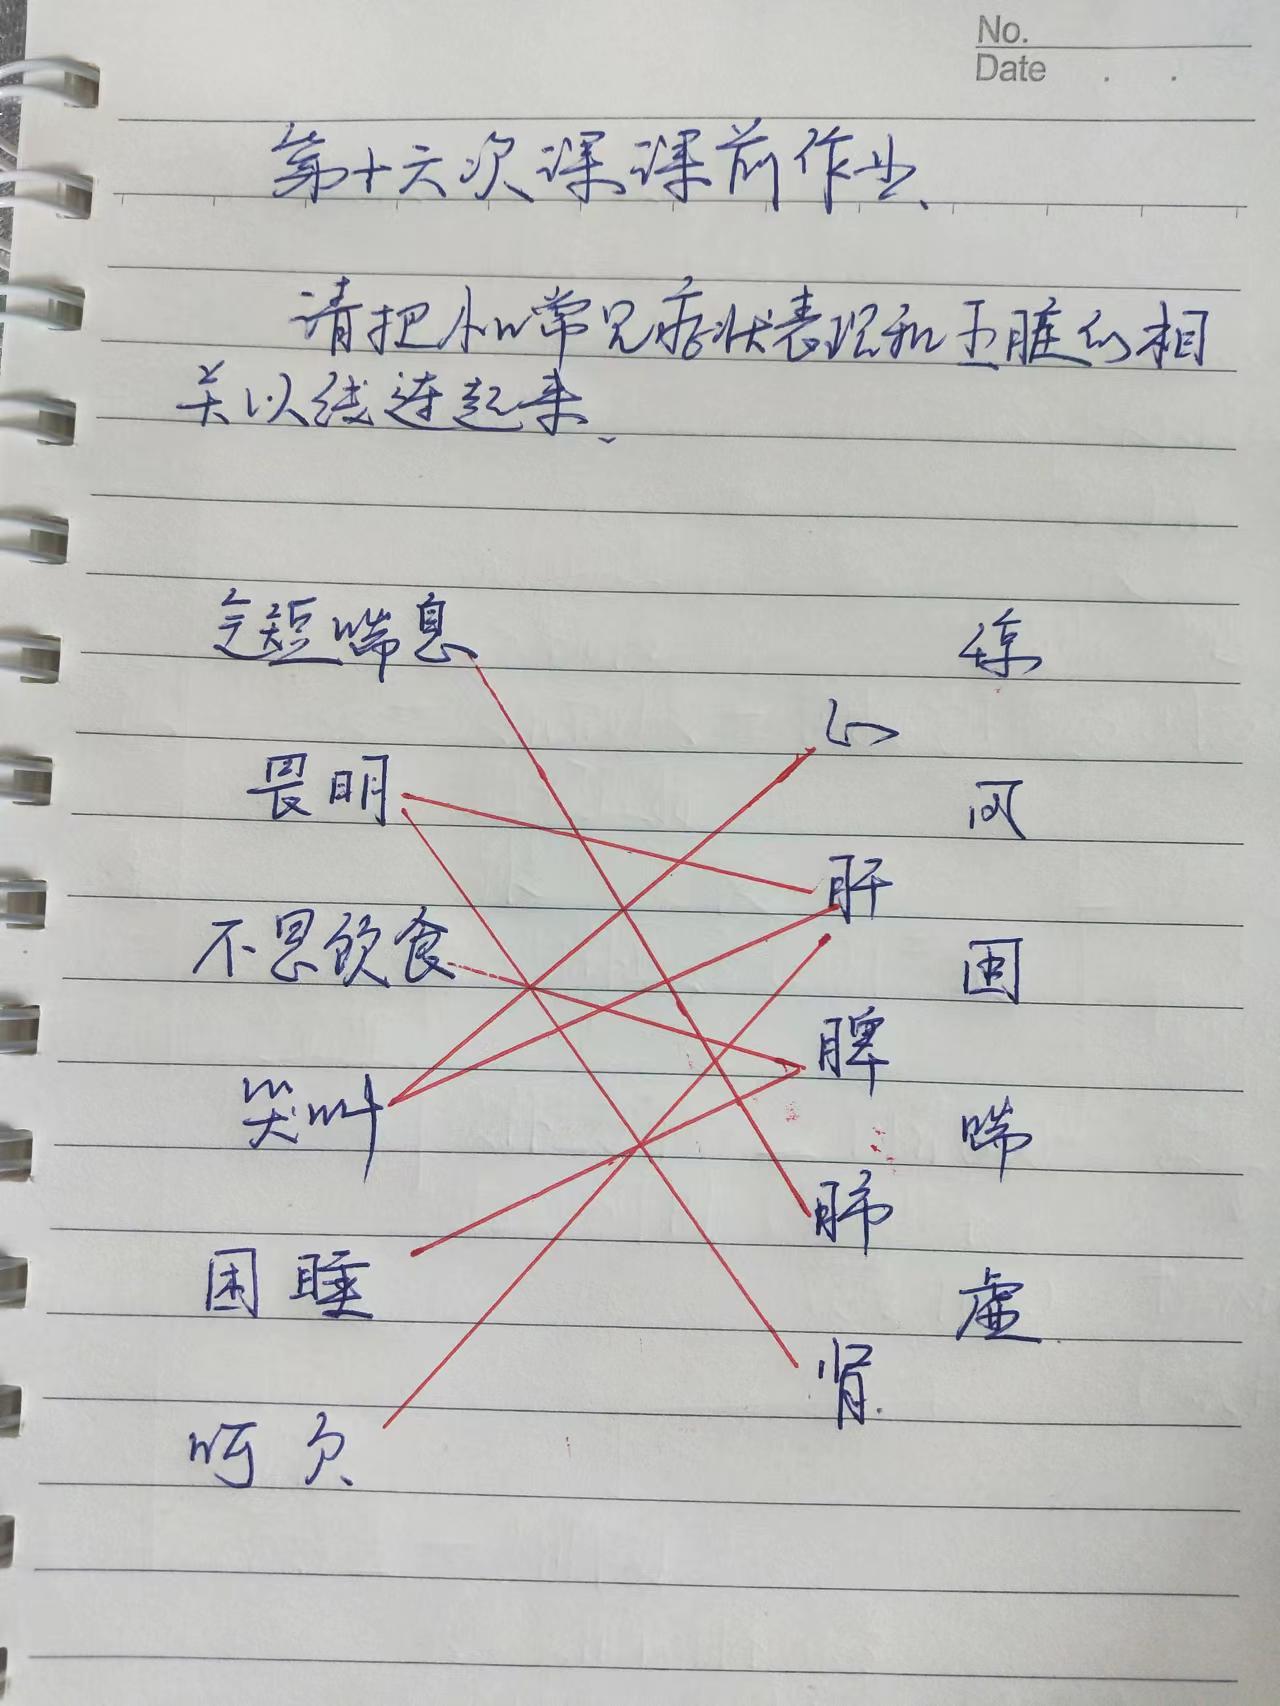 No.
Date
第十六次课课前作业
请把小儿常见症状表现和五脏的相
关以线连起来
气短喘息
惊
心
畏明
风
肝
不思饮食
困
脾
哭叫
喘
肺
困睡
虚
肾
呵欠